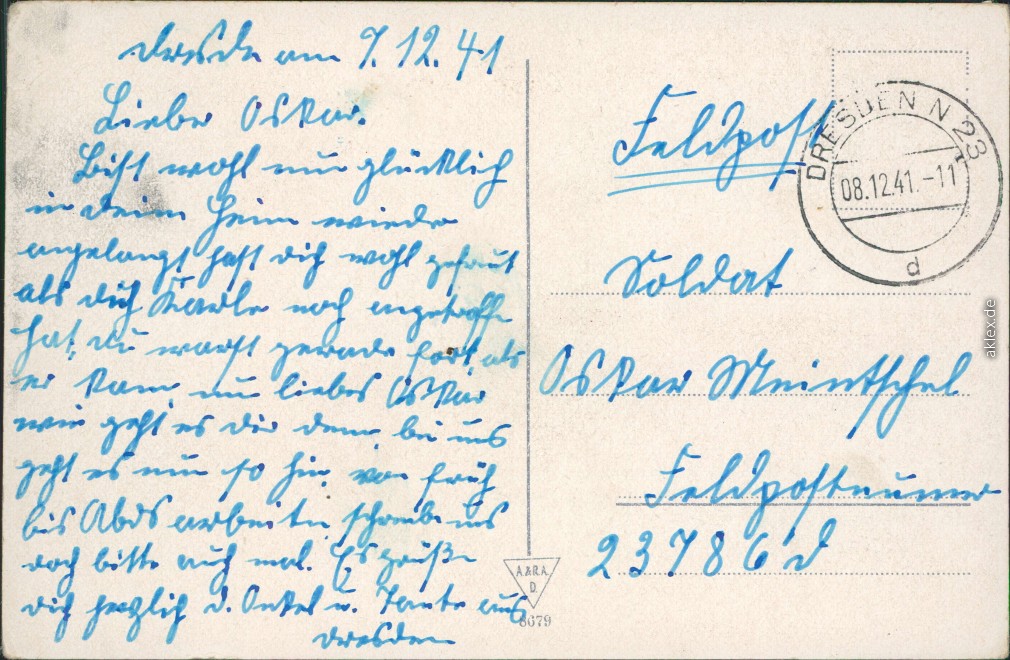 Dresden am 7.12.41
Lieber Oskar.
Bist wohl nun glücklich
in deim Heim wieder
angelangt, hast dich wohl gefreut
als dich Karle noch angetroffen
hat, du warst gerade fort, als
er kam, nun lieber Oskar
wie geht es dir denn, bei uns
geht es nun so hin, von früh
bis Abds arbeiten, schreibe uns
doch bitte auch mal. Es grüßen
dich herzlich d. Onkel u. Tante aus
Dresden
A.&R.A.
D.
8679
Feldpost
DRESDEN N 23
08.12.41.-11
d
Soldat
Oskar Meintschel
Feldpostnummer
23786 d
aklex.de